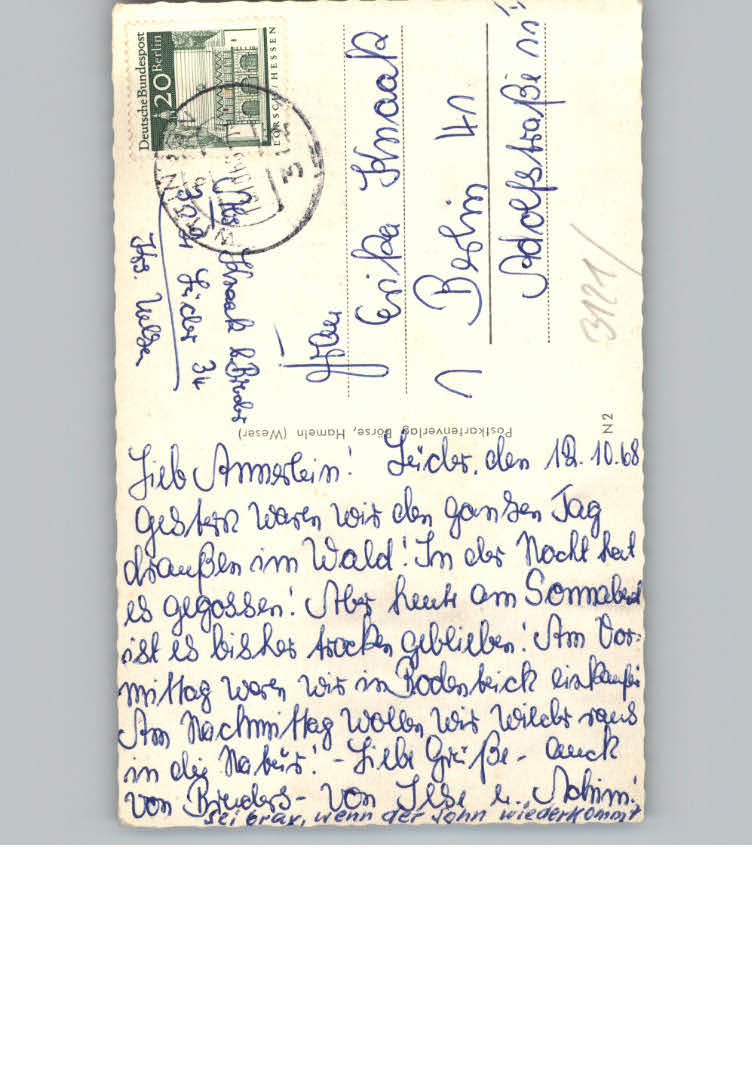 Deutsche Bundespost
Berlin
20
LORSCH / HESSEN
Ilse Knaak b. Breders
Lüder 34
Krs. Uelzen
Frau
Erika Knaak
1 Berlin 41
Adolfstraße
3121/
Postkartenverlag Börse, Hameln (Weser)
N 2
Lieb Annerlein! Lüder, den 12.10.68
Gestern waren wir den ganzen Tag
draußen im Wald! In der Nacht hat
es gegossen! Aber heute am Sonnabend
ist es bisher trocken geblieben! Am Vor-
mittag waren wir in Bodenteich einkaufen
Am Nachmittag wollen wir wieder raus
in die Natur! - Liebe Grüße - auch
von Breders - von Ilse u. Achim!
Sei brav, wenn der Sohn wiederkommt